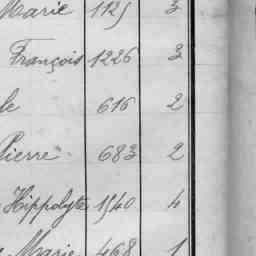 Marie 1125 3
François 1226 3
le 616 2
Pierre 683 2
Hippolyte 1540 4
Marie 468 1